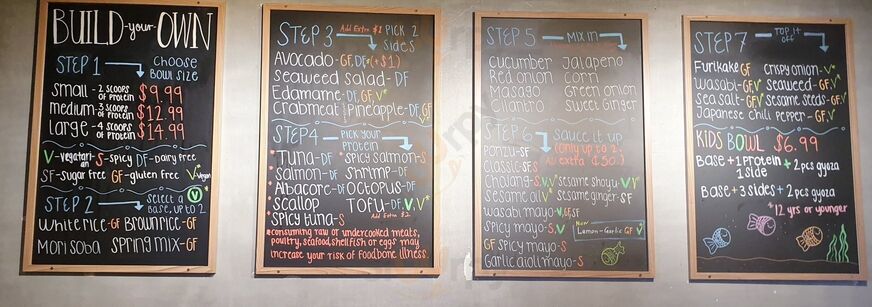 BUILD-your-OWN
STEP 1 → CHOOSE BOWL SIZE
Small - 2 SCOOPS OF PROTEIN $9.99
medium - 3 SCOOPS OF PROTEIN $12.99
large - 4 SCOOPS OF PROTEIN $14.99
V-vegetarian S-spicy DF-dairy free
SF-sugar free GF-gluten free V*Vegan
STEP 2 → Select a Base, up to 2 V
White rice-GF Brown rice-GF
Mori soba SPRING mix-GF
STEP 3 Add Extra $1 PICK 2 Sides
Avocado-GF, DF, (+$1)
Seaweed Salad-DF
Edamame-DF, GF, V*
Crabmeat Pineapple-DF, GF
STEP 4 - PICK YOUR PROTEIN
*Tuna-DF *Spicy salmon-S
*Salmon-DF *Shrimp-DF
*Albacore-DF Octopus-DF
*Scallop TOFU-DF, V, V*
*Spicy tuna-S Add Extra $2
*consuming raw or undercooked meats,
poultry, seafood, shellfish or eggs may
increase your risk of foodbone illness.
STEP 5 - MIX IN
CUCUMBER Jalapeño
Red onion Corn
Masago Green onion
Cilantro Sweet Ginger
STEP 6 Sauce it up
(only up to 2.
Au extra $.50)
PONZU-SF
Classic-SF, S
Chojang-S, V, V Sesame shoyu-V, V*
Sesame oil-V* Sesame ginger-SF
wasabi mayo-V, GF, SF
Spicy mayo-S, V
New Lemon-Garlic GF V
GF Spicy mayo-S
Garlic aioli mayo-S
STEP 7 - TOP IT OFF
Furikake GF Crispy onion-V*
Wasabi-GF, V Seaweed-GF, V
Sea salt-GF, V Sesame seeds-GF, V
Japanese chili pepper-GF, V
KIDS BOWL $6.99
Base + 1 Protein 1 side + 2 pcs gyoza
Base + 3 sides + 2 pcs gyoza
*12 yrs or younger